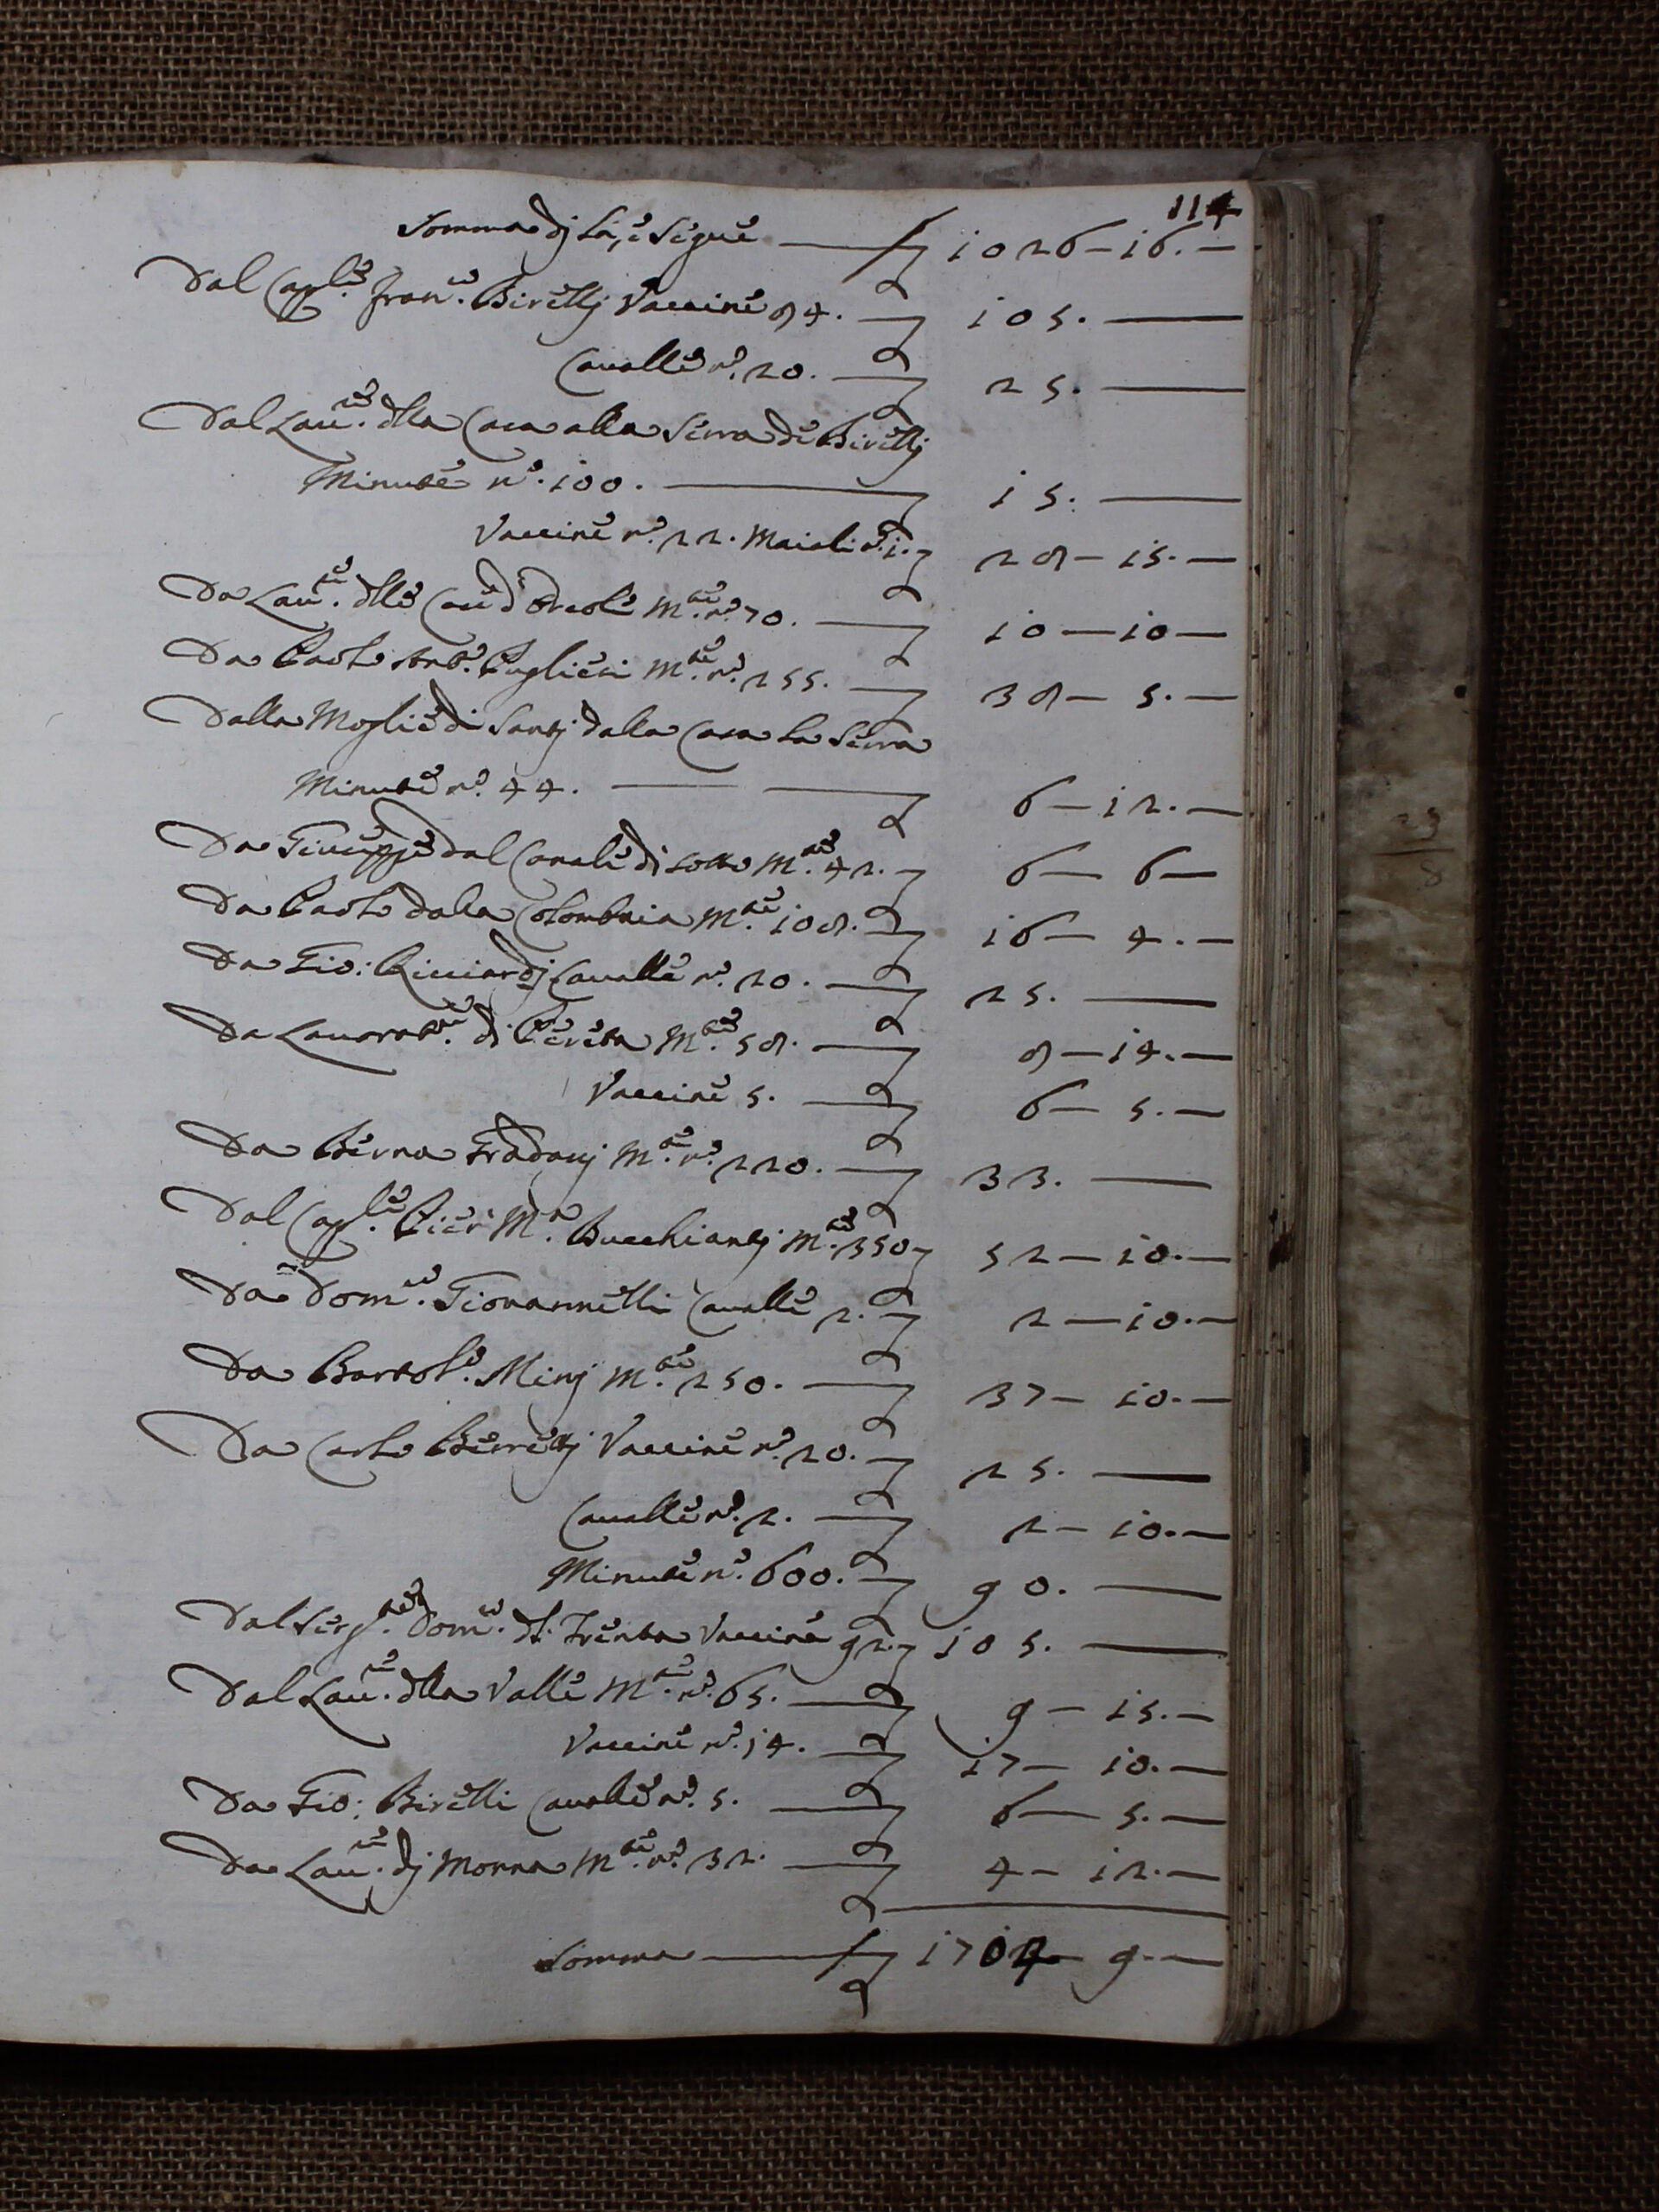 114
Somma di là, e segue — 1026 — 16. —
Dal Cap.le Fran.co Biretti Vaccine 84. — 105. —
Cavalle n.o 20. — 25. —
Dal Lau.re della Casa alla Serra de Biretti
Minute n.o 100. — 15. —
Vaccine n.o 22. Maiali n.o 1. 28 — 15. —
Da Lau.re delle Case d' M.te n.o 70. — 10 — 10 —
Da Paolo Ant.o Pugliesi M.te n.o 255. — 38 — 5. —
Dalla Moglie di Santj dalla Casa la Serra
Minute n.o 44. — 6 — 12. —
Da Giuseppe dal Canale di Sotto M.te 42. — 6 — 6 —
Da Paolo dalla Colombaia M.te 108. — 16 — 4. —
Da Gio: Ricciardj Cavalle n.o 20. — 25. —
Da Lauorat.re di Pereta M.te 58. — 8 — 14. —
Vaccine 5. — 6 — 5. —
Da Berna M.te n.o 220. — 33. —
Dal Cap.le Pier M.a Bucchiantj M.te 350 52 — 10. —
Da Dom.co Giovannetti Cavalle 2. — 2 — 10. —
Da Bartol.o Minj M.te 250. — 37 — 10. —
Da Carlo Vaccine n.o 20. — 25. —
Cavalle n.o 2. — 2 — 10. —
Minute n.o 600. — 90. —
Dal Serg.te Dom.co Trenta Vaccine 92. 105. —
Dal Lau.re della Valle M.te n.o 65. — 9 — 15. —
Vaccine n.o 14. — 17 — 10. —
Da Gio: Biretti Cavalle n.o 5. — 6 — 5. —
Da Lau.re dj Monna M.te n.o 32. — 4 — 12. —
Somma — 1704 — 9. —